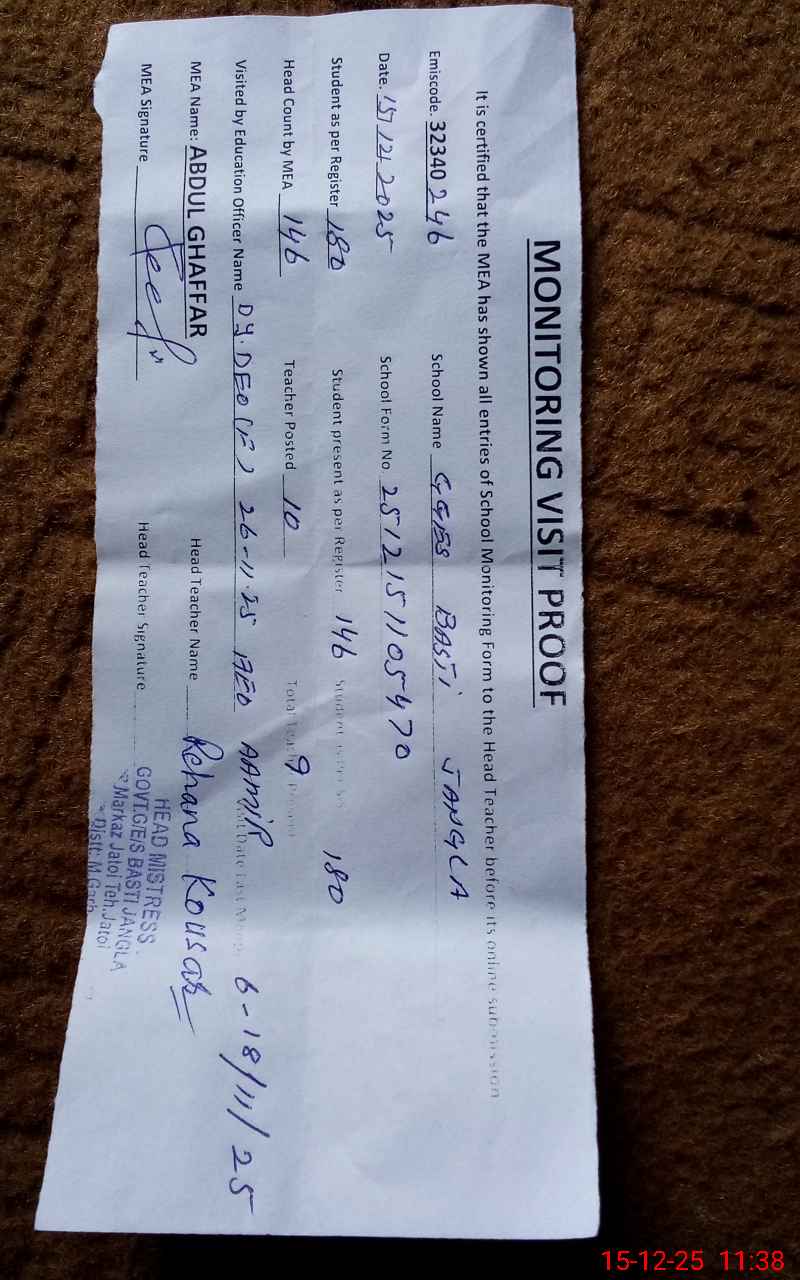 MONITORING VISIT PROOF
It is certified that the MEA has shown all entries of School Monitoring Form to the Head Teacher before its online submission
Emiscode. 32340246 School Name GGES BASTI JANGLA
Date. 15/12 2025 School Form No. 2512151105470
Student as per Register 180 Student present as per Register 146 Student as per 180
Head Count by MEA 146 Teacher Posted 10 Total Teacher 9 Present
Visited by Education Officer Name DY.DEO(F) 26-11-25 AEO AAMIR Visit Date Last Month 6-18/11/25
MEA Name: ABDUL GHAFFAR Head Teacher Name Rehana Kousar
MEA Signature Head Teacher Signature
HEAD MISTRESS
GOVT.GE/S BASTI JANGLA
Markaz Jatoi Teh.Jatoi
Distt: M.Garh
15-12-25 11:38